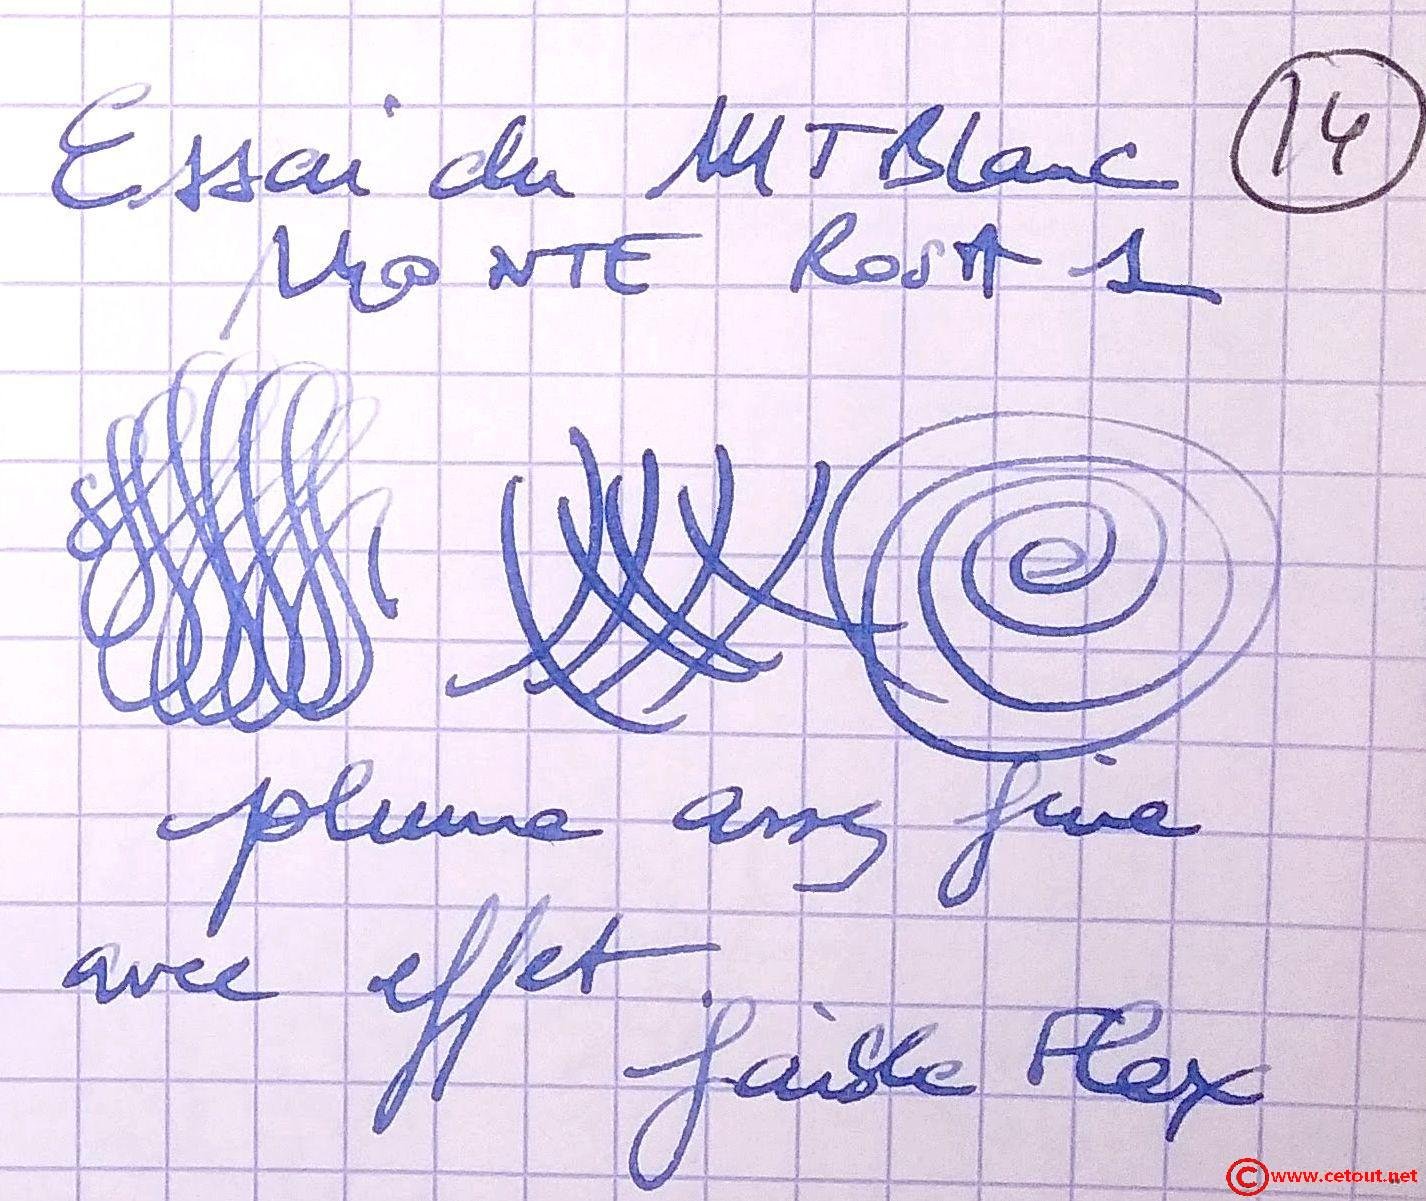 Essai du MTBlanc
14
MONTE RosA 1
plume assez fine
avec effet
faible Flex
©www.cetout.net